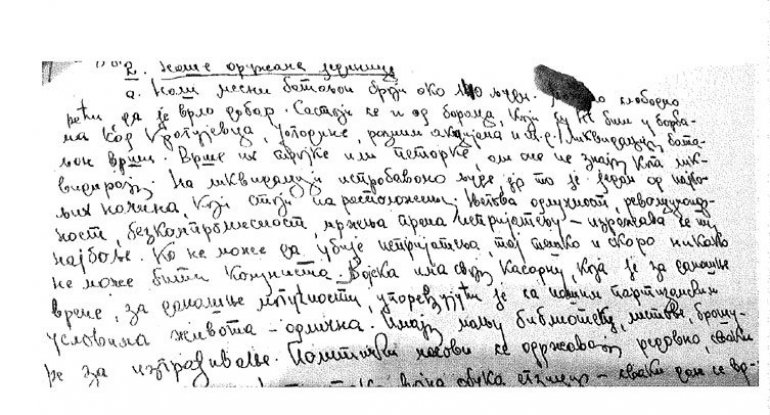 2. Наше оружане јединице
а. Наш месни батаљон броји око 140 људи. слободно
рећи да је врло добар. Састоји се и од бораца, који су већ били у борба-
ма код Крагујевца, Јагодине, разним акцијама и т.д. Ликвидације бата-
љон врши. Врше их тројке или петорке, али оне не знају кога лик-
видирају. На ликвидацији испробавамо људе јер то је један од најбо-
љих начина, који стоји на расположењу. Њихова одлучност, револуционар-
ност, бескомпромисност, мржња према непријатељу – изражава се ту
најбоље. Ко не може да убије непријатеља, тај тешко и скоро никако
не може бити комуниста. Војска има своју касарну која је за данашње
време, за данашње могућности, упоређујући је са нашим партизанским
условима живота – одлична. Имају малу библиотеку, листове, брошу-
ре за изграђивање. Политички часови се одржавају редовно, сваки
обука – сваки дан се вр-